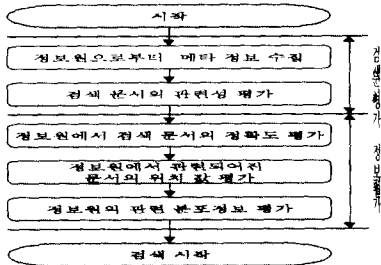 시작
정보원으로부터 메타 정보 수집
검색 문서의 관련성 평가
정보원에서 검색 문서의 정확도 평가
정보원에서 관련되어진
문서의 위치 값 평가
정보원의 관련 분포정보 평가
검색 시작
검색문평가
정보평가